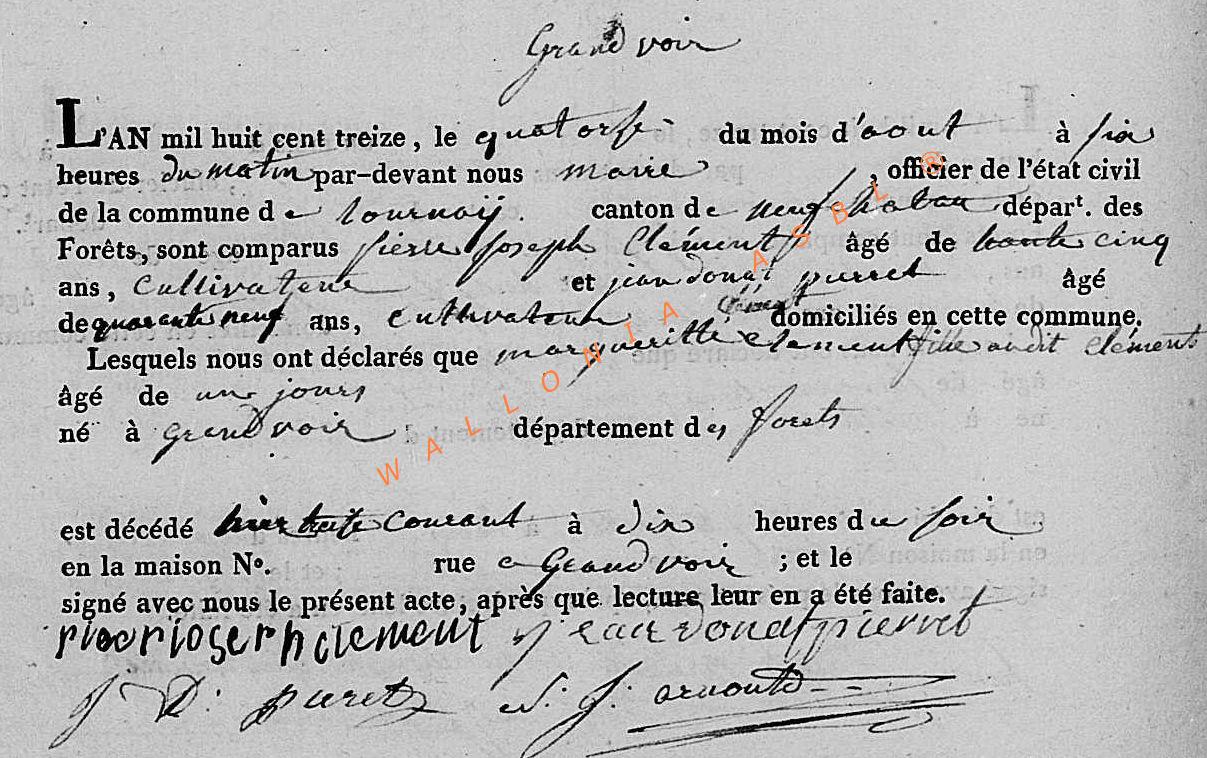 Grandvoir
L'AN mil huit cent treize, le quatorse du mois d'aout à six
heures du matin par-devant nous maire , officier de l'état civil
de la commune de tournay. canton de neufchatau départ. des
Forêts, sont comparus pierre joseph Clément âgé de trente cinq
ans, Cultivateur et jean donat pierret âgé
de quarante neuf ans, Cultivateur domiciliés en cette commune.
clément
Lesquels nous ont déclarés que margueritte clement fille audit clément
âgé de un jours
né à grandvoir département des forets
est décédé hier treise courant à dix heures du soir
en la maison No. rue a Grandvoir ; et le
signé avec nous le présent acte, après que lecture leur en a été faite.
pieeriosephclement jeandonatpierret
J D: pieret J: arnould
WALLONIA ASBL ®